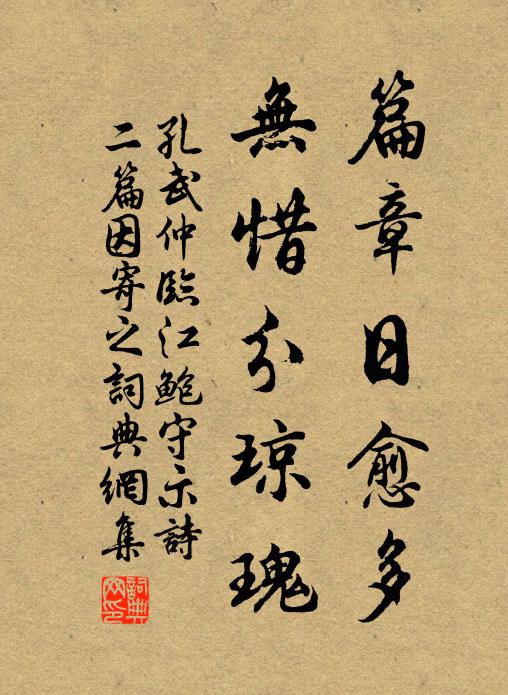 篇章日愈多
無惜分琼瑰
孔武仲臨江鮑守示詩
二篇因寄之詞典網集
詞典
网印